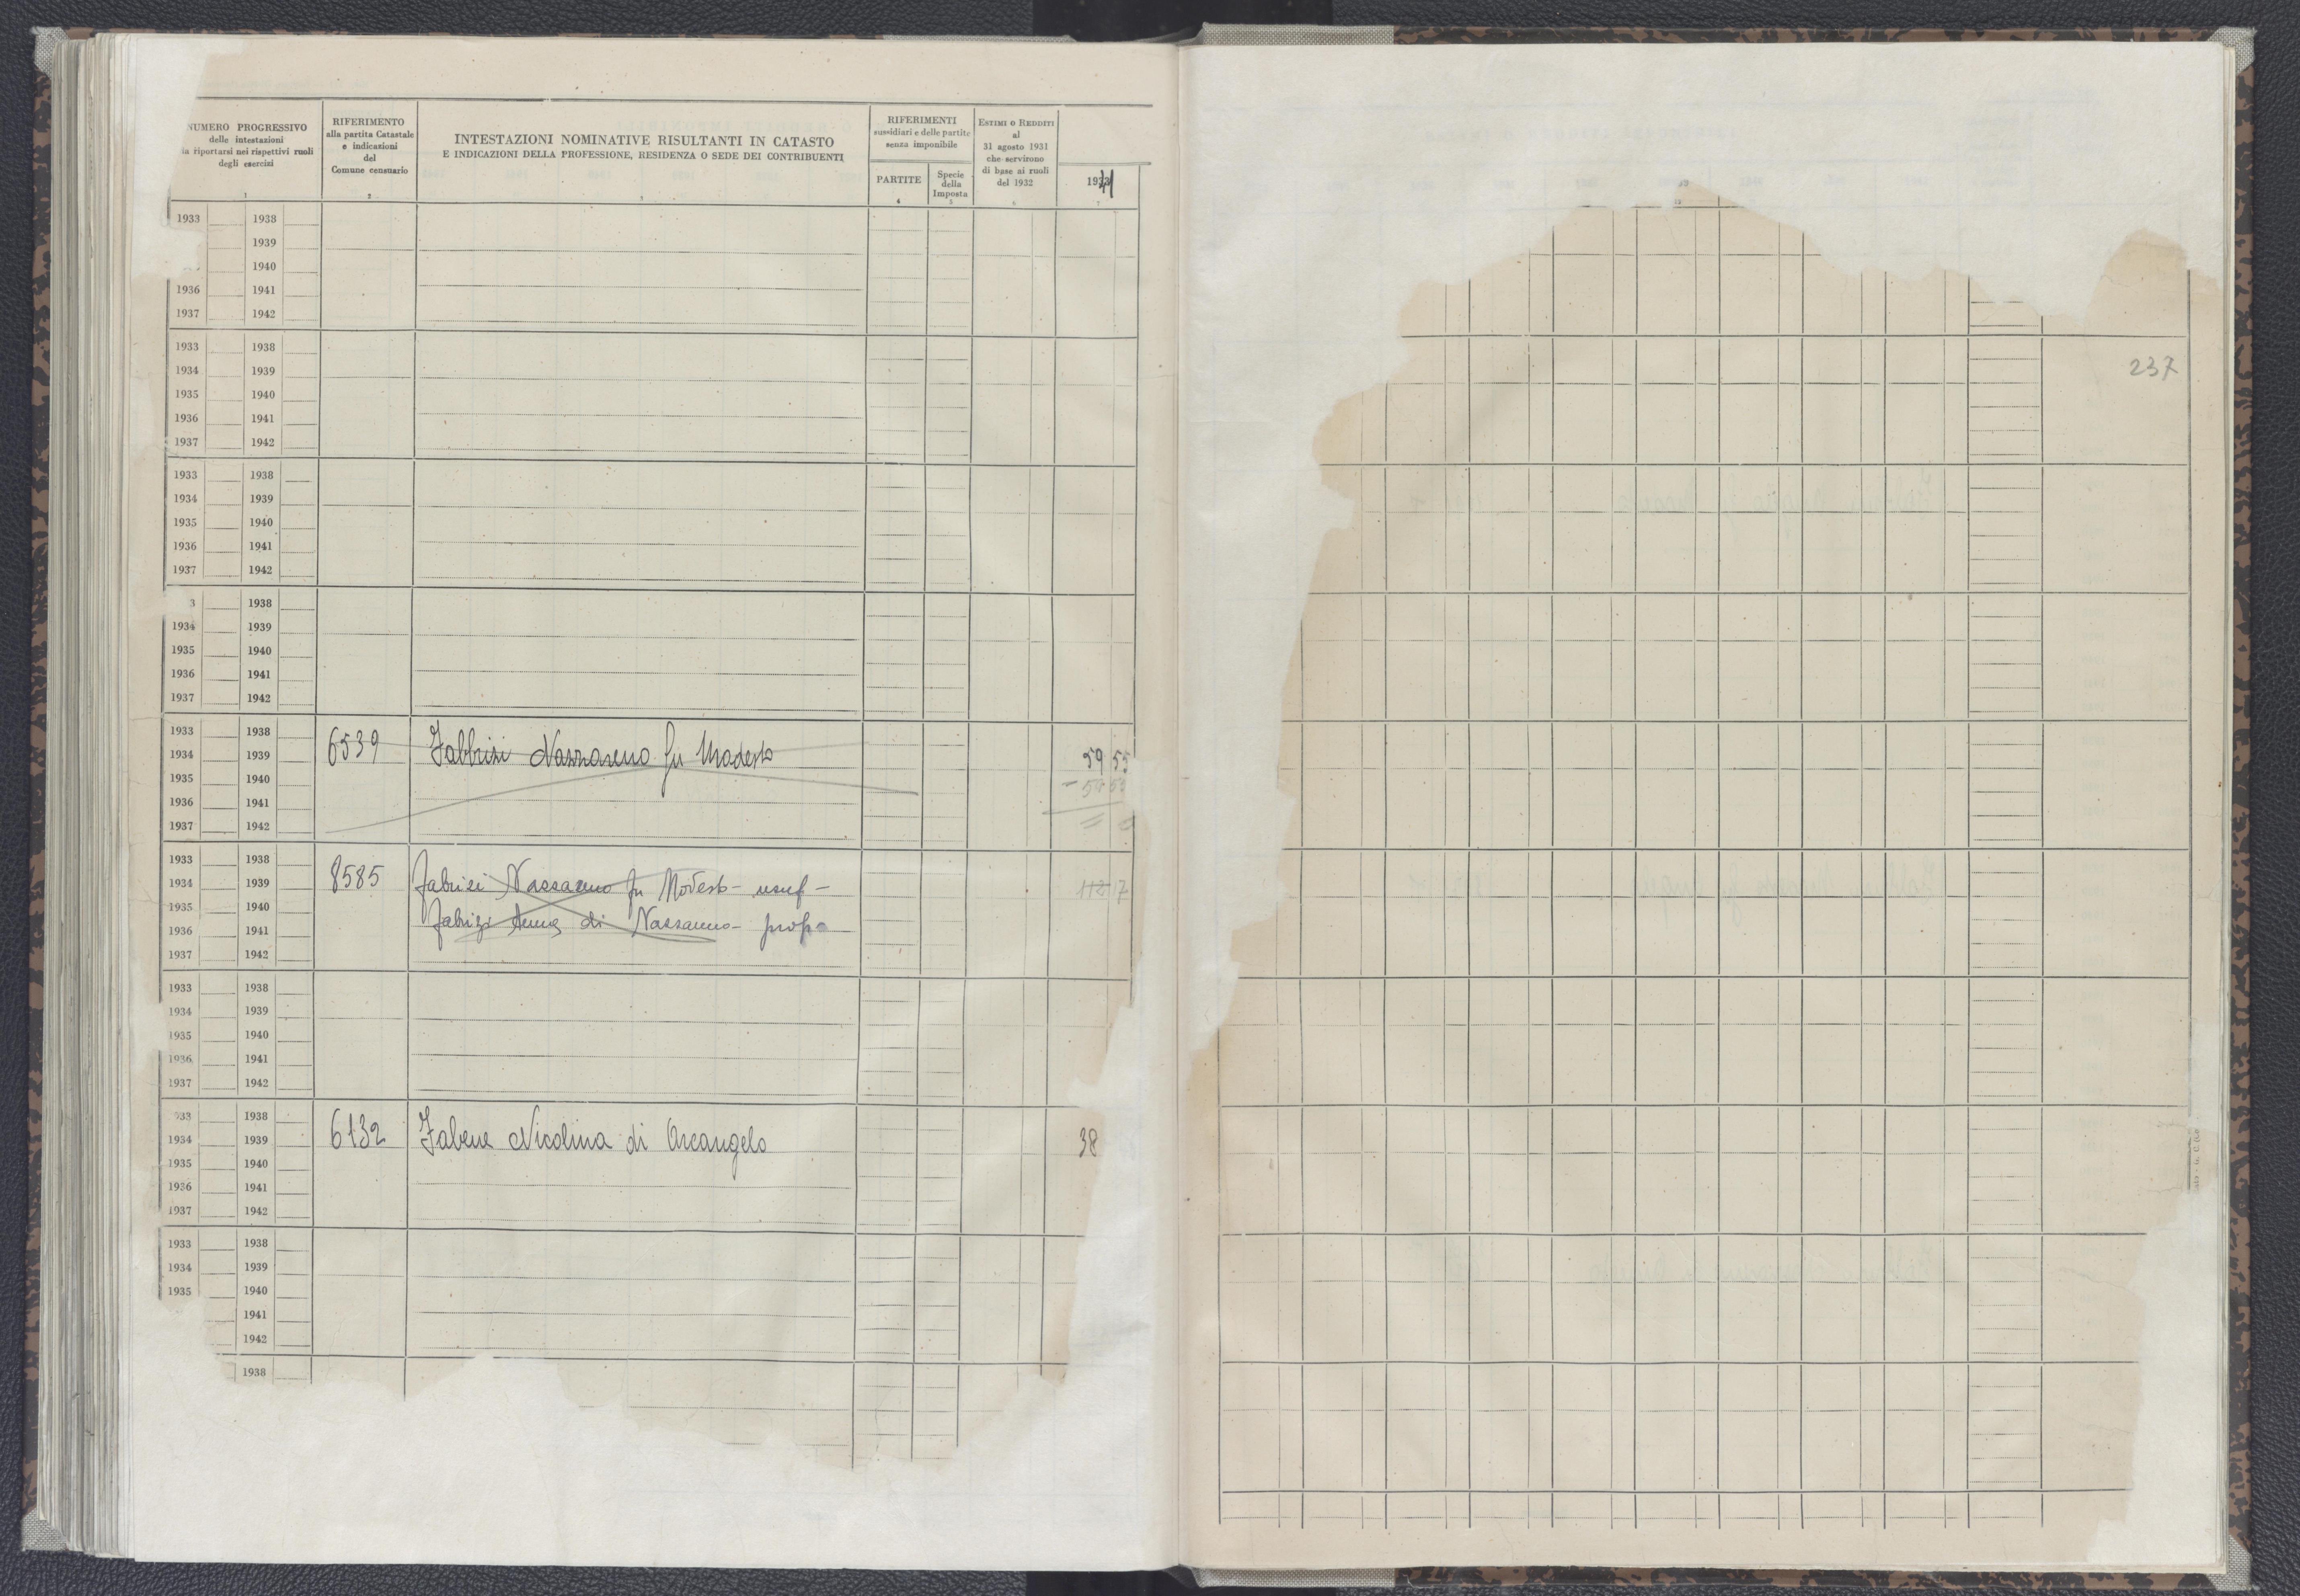 NUMERO PROGRESSIVO
delle intestazioni
da riportarsi nei rispettivi ruoli
degli esercizi
1
RIFERIMENTO
alla partita Catastale
e indicazioni
del
Comune censuario
2
INTESTAZIONI NOMINATIVE RISULTANTI IN CATASTO
E INDICAZIONI DELLA PROFESSIONE, RESIDENZA O SEDE DEI CONTRIBUENTI
3
RIFERIMENTI
sussidiari e delle partite
senza imponibile
PARTITE
4
Specie
della
Imposta
5
ESTIMI O REDDITI
al
31 agosto 1931
che servirono
di base ai ruoli
del 1932
6
41
7
1933 1938
1939
1940
1936 1941
1937 1942
1933 1938
1934 1939
1935 1940
1936 1941
1937 1942
237
1933 1938
1934 1939
1935 1940
1936 1941
1937 1942
3 1938
1934 1939
1935 1940
1936 1941
1937 1942
1933 1938
1934 1939 6539 Fabbrizi Nazzareno fu Modesto 59 55
1935 1940
1936 1941
1937 1942
1933 1938
1934 1939 8585 Fabrizi Nazzareno fu Modesto - usuf - 112 17
1935 1940
1936 1941 Fabrizi Anna di Nazzareno - propa
1937 1942
1933 1938
1934 1939
1935 1940
1936 1941
1937 1942
933 1938
1934 1939 6132 Fabene Nicolina di Arcangelo 38
1935 1940
1936 1941
1937 1942
1933 1938
1934 1939
1935 1940
1941
1942
1938